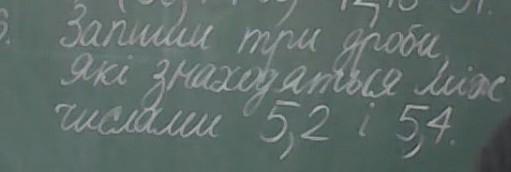 Запиши три дроби,
які знаходяться між
числами 5,2 і 5,4.